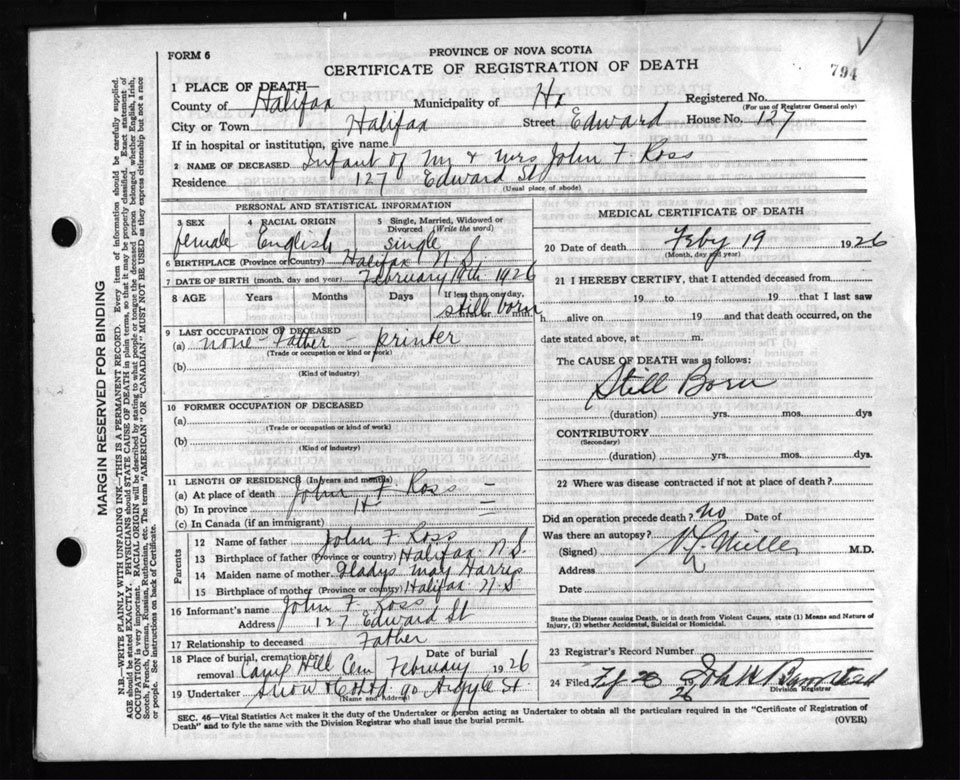 FORM 6
PROVINCE OF NOVA SCOTIA
CERTIFICATE OF REGISTRATION OF DEATH
794
1 PLACE OF DEATH—
County of Halifax Municipality of Hx Registered No.
(For use of Registrar General only)
City or Town Halifax Street Edward House No. 127
If in hospital or institution, give name
2 NAME OF DECEASED Infant of Mr & Mrs John F. Ross
Residence 127 Edward St
(Usual place of abode)
PERSONAL AND STATISTICAL INFORMATION
3 SEX 4 RACIAL ORIGIN 5 Single, Married, Widowed or Divorced (Write the word)
female English single
6 BIRTHPLACE (Province or Country) Halifax N.S.
7 DATE OF BIRTH (month, day and year) February 19th 1926
8 AGE Years Months Days If less than one day,
still born
9 LAST OCCUPATION OF DECEASED
(a) none - Father - printer
(Trade or occupation or kind of work)
(b)
(Kind of industry)
10 FORMER OCCUPATION OF DECEASED
(a)
(Trade or occupation or kind of work)
(b)
(Kind of industry)
11 LENGTH OF RESIDENCE (In years and months)
(a) At place of death John F Ross
(b) In province
(c) In Canada (if an immigrant)
Parents
12 Name of father John F. Ross
13 Birthplace of father (Province or country) Halifax N.S.
14 Maiden name of mother Gladys May Harris
15 Birthplace of mother (Province or country) Halifax N.S
16 Informant's name John F. Ross
Address 127 Edward St
17 Relationship to deceased Father
18 Place of burial, cremation or removal Camp Hill Cem Date of burial February 1926
19 Undertaker Snow & Co Ltd 90 Argyle St.
(Name and Address)
MEDICAL CERTIFICATE OF DEATH
20 Date of death Feby 19 1926
(Month, day and year)
21 I HEREBY CERTIFY, that I attended deceased from
19 to 19 that I last saw
h alive on 19 and that death occurred, on
date stated above, at m.
The CAUSE OF DEATH was as follows:
Still Born
(duration) yrs. mos. dys
CONTRIBUTORY
(Secondary)
(duration) yrs. mos. dys.
22 Where was disease contracted if not at place of death?
Did an operation precede death? no Date of
Was there an autopsy?
(Signed) M.D.
Address
Date
State the Disease causing Death, or in death from Violent Causes, state (1) Means and Nature of Injury, (2) whether Accidental, Suicidal or Homicidal.
23 Registrar's Record Number
24 Filed Feb 20 1926
Division Registrar
SEC. 46—Vital Statistics Act makes it the duty of the Undertaker or person acting as Undertaker to obtain all the particulars required in the "Certificate of Registration of
Death" and to fyle the same with the Division Registrar who shall issue the burial permit.
(OVER)
MARGIN RESERVED FOR BINDING
N.B.—WRITE PLAINLY WITH UNFADING INK—THIS IS A PERMANENT RECORD. Every item of information should be carefully supplied.
AGE should be stated EXACTLY. PHYSICIANS should STATE CAUSE OF DEATH in plain terms, so that it may be properly classified. Exact statement of
OCCUPATION is very important. RACIAL ORIGIN will be described by stating to what people or tongue the deceased person belonged, whether English, Irish,
Scotch, French, German, Russian, Ruthenian, etc. The terms "AMERICAN" OR "CANADIAN" MUST NOT BE USED as they express citizenship but not a race
or people. See instructions on back of Certificate.